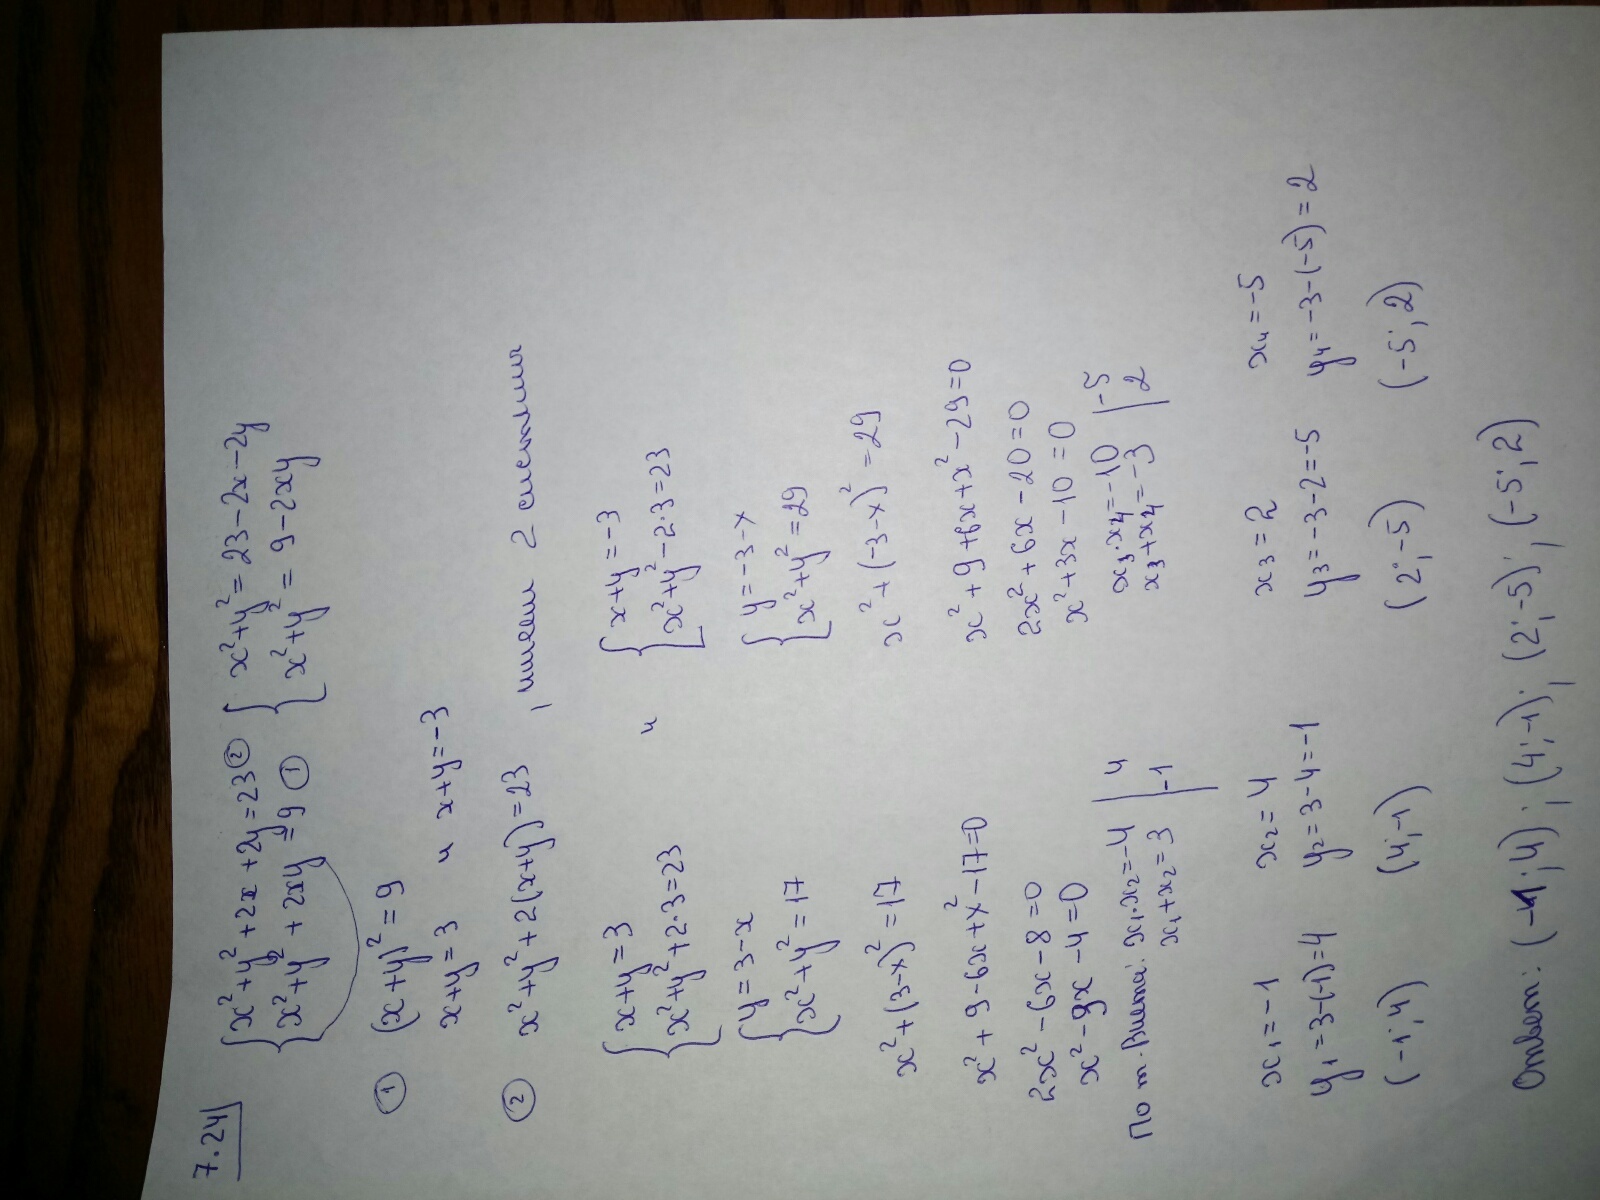 7.24
{ x²+y²+2x+2y=23 ② { x²+y²=23-2x-2y
{ x²+y²+2xy=9 ① { x²+y²=9-2xy
① (x+y)²=9
x+y=3 и x+y=-3
② x²+y²+2(x+y)=23 , имеем 2 системы
{ x+y=3 и { x+y=-3
{ x²+y²+2·3=23 { x²+y²-2·3=23
{ y=3-x { y=-3-x
{ x²+y²=17 { x²+y²=29
x²+(3-x)²=17 x²+(-3-x)²=29
x²+9-6x+x²-17=0 x²+9+6x+x²-29=0
2x²-6x-8=0 2x²+6x-20=0
x²-9x-4=0 x²+3x-10=0
По т. Виета: x₁·x₂=-4 | 4 x₃·x₄=-10 | -5
x₁+x₂=3 | -1 x₃+x₄=-3 | 2
x₁=-1 x₂=4 x₃=2 x₄=-5
y₁=3-(-1)=4 y₂=3-4=-1 y₃=-3-2=-5 y₄=-3-(-5)=2
(-1;4) (4;-1) (2;-5) (-5;2)
Ответ: (-1;4); (4;-1); (2;-5); (-5;2)